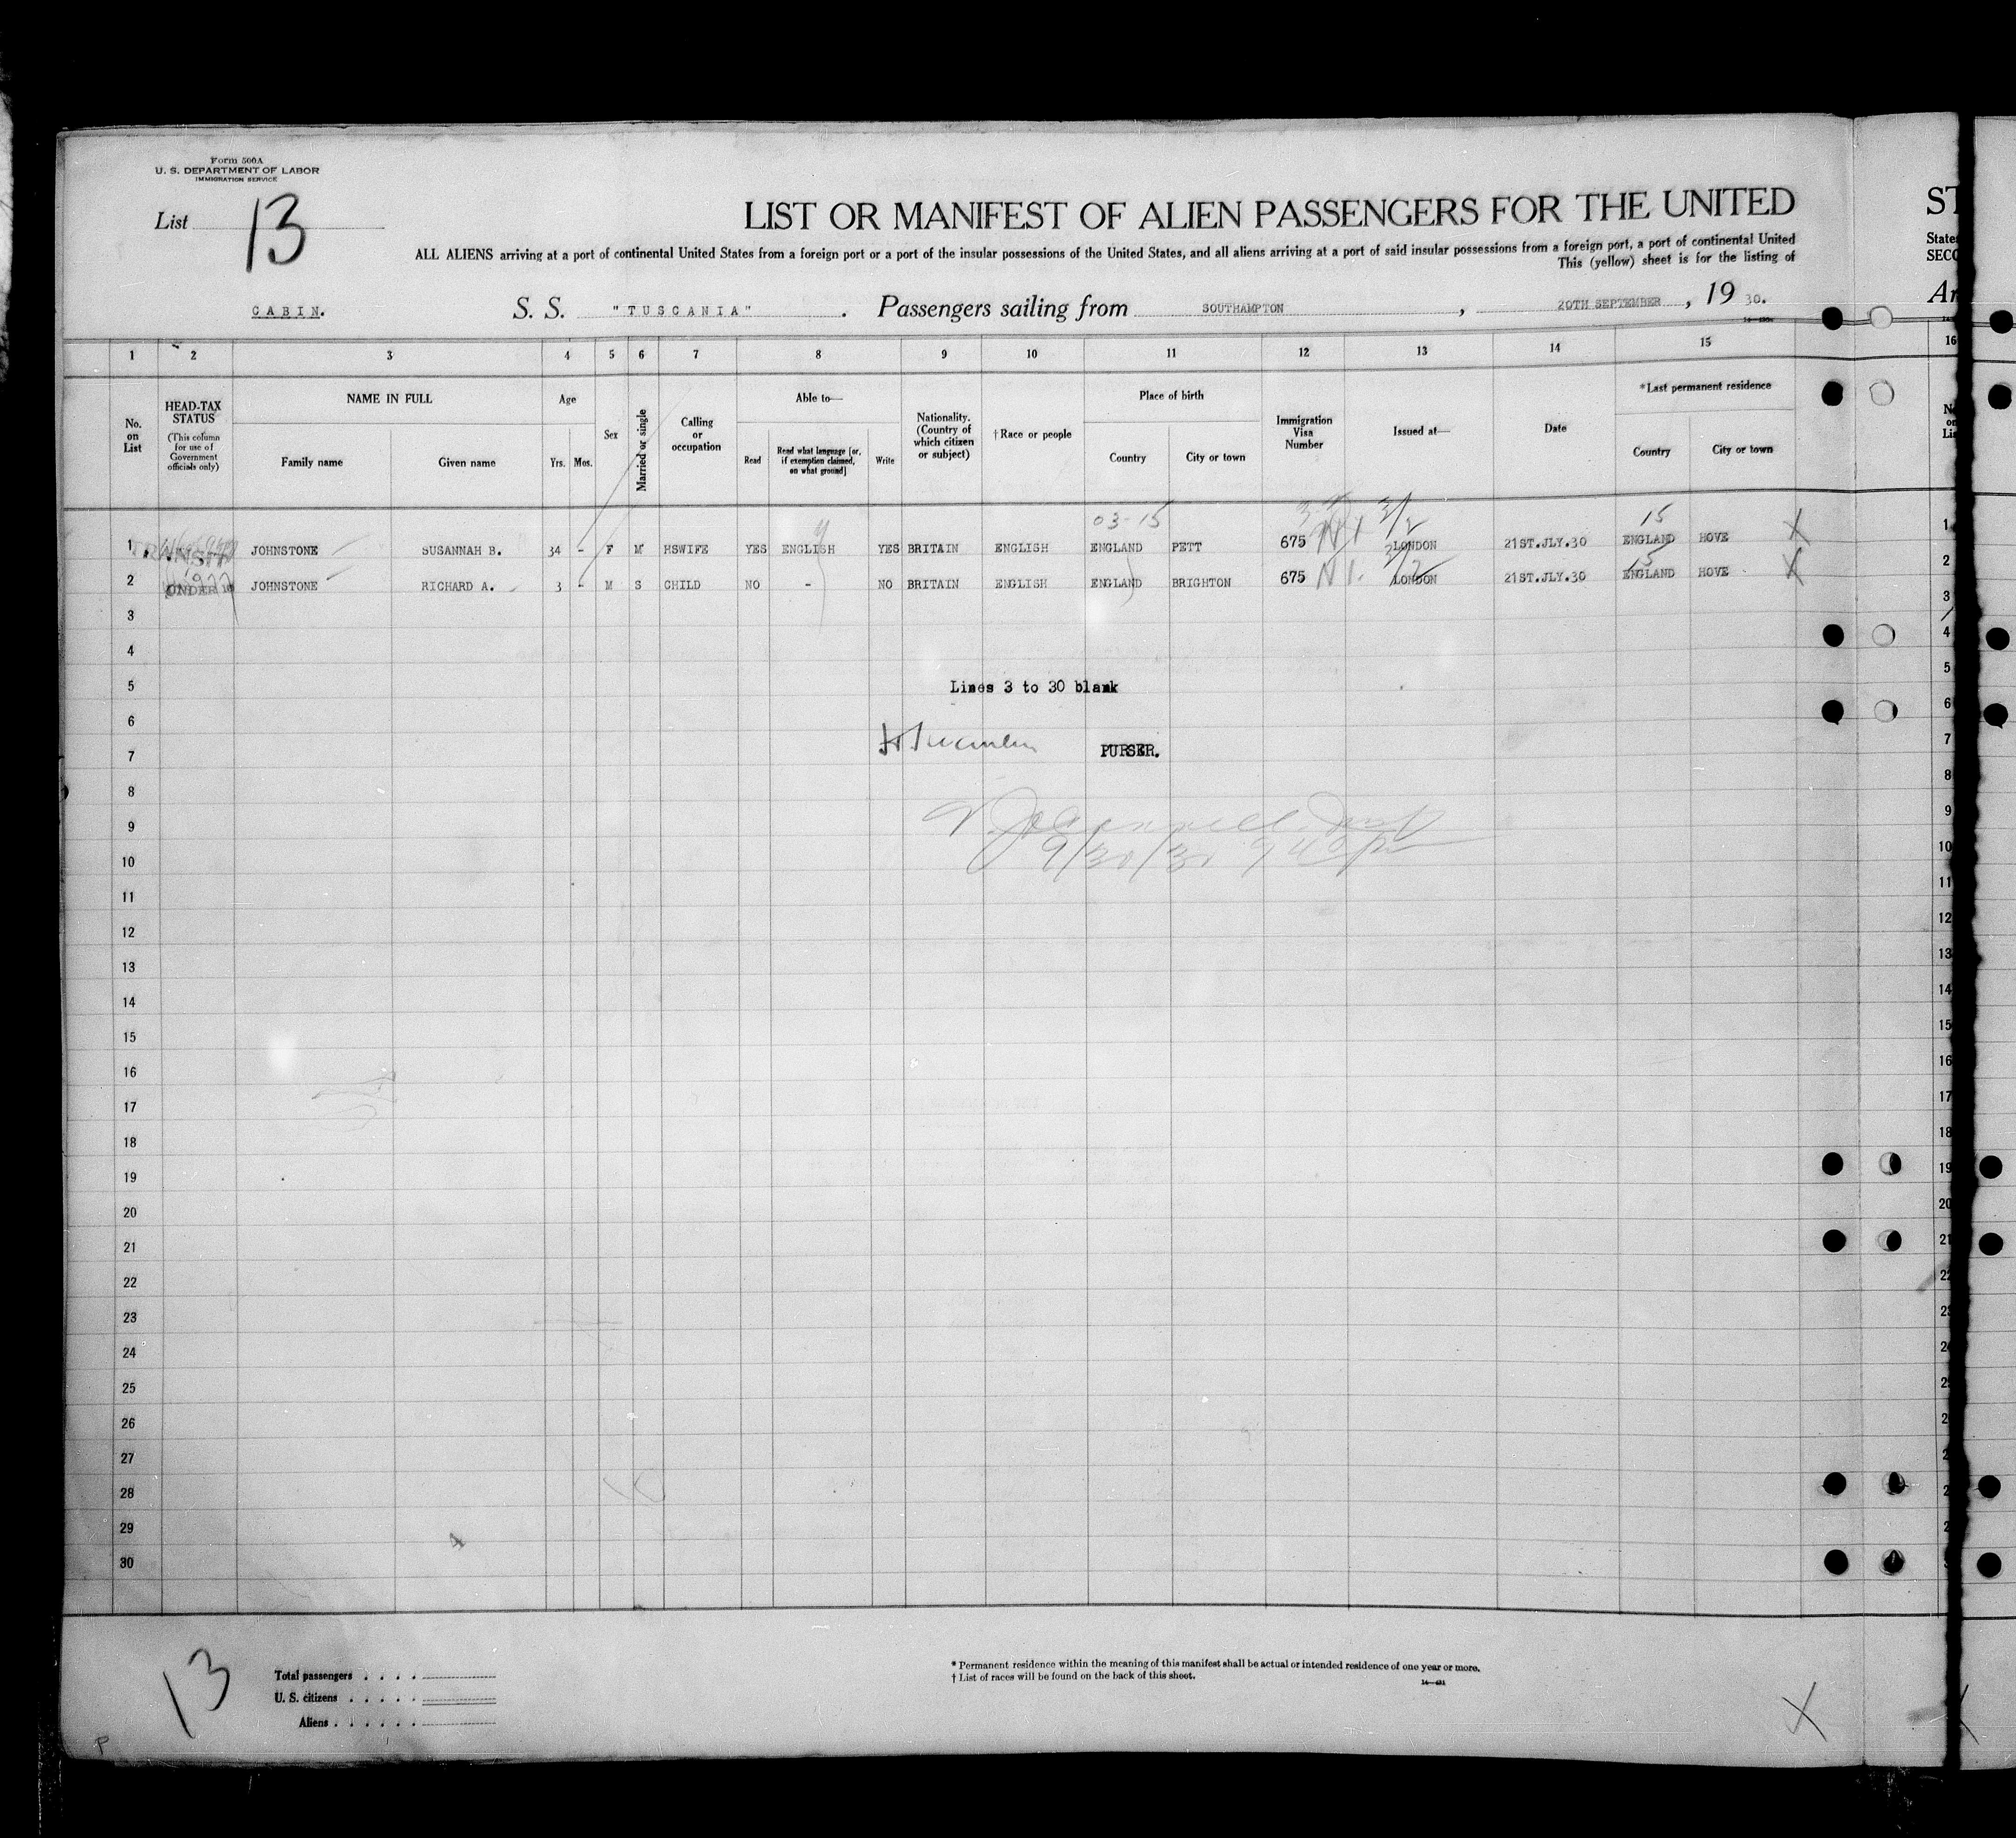 Form 500A
U. S. DEPARTMENT OF LABOR
IMMIGRATION SERVICE
List 13
LIST OR MANIFEST OF ALIEN PASSENGERS FOR THE UNITED
ST
ALL ALIENS arriving at a port of continental United States from a foreign port or a port of the insular possessions of the United States, and all aliens arriving at a port of said insular possessions from a foreign port, a port of continental United
States
This (yellow) sheet is for the listing of
SECO
CABIN. S. S. "TUSCANIA". Passengers sailing from SOUTHAMPTON, 20TH SEPTEMBER, 1930.
Ar
1 2 3 4 5 6 7 8 9 10 11 12 13 14 15 16
No. on List
HEAD-TAX STATUS (This column for use of Government officials only)
NAME IN FULL
Family name Given name
Age
Yrs. Mos.
Sex
Married or single
Calling or occupation
Able to—
Read Read what language [or, if exemption claimed, on what ground] Write
Nationality. (Country of which citizen or subject)
†Race or people
Place of birth
Country City or town
Immigration Visa Number
Issued at—
Date
*Last permanent residence
Country City or town
03-15 15
1 JOHNSTONE SUSANNAH B. 34 - F M HSWIFE YES ENGLISH YES BRITAIN ENGLISH ENGLAND PETT 675 LONDON 21ST.JLY.30 ENGLAND HOVE X 1
15
2 UNDER 16 JOHNSTONE RICHARD A. 3 - M S CHILD NO - NO BRITAIN ENGLISH ENGLAND BRIGHTON 675 LONDON 21ST.JLY.30 ENGLAND HOVE X 2
3 3
4 4
5 Lines 3 to 30 blank 5
6 6
7 PURSER. 7
8 8
9 9
10 9/30/30 10
11 11
12 12
13 13
14 14
15 15
16 16
17 17
18 18
19 19
20 20
21 21
22 22
23
24
25
26
27
28
29
30
4
13
Total passengers
U. S. citizens
Aliens
* Permanent residence within the meaning of this manifest shall be actual or intended residence of one year or more.
† List of races will be found on the back of this sheet.
X
P